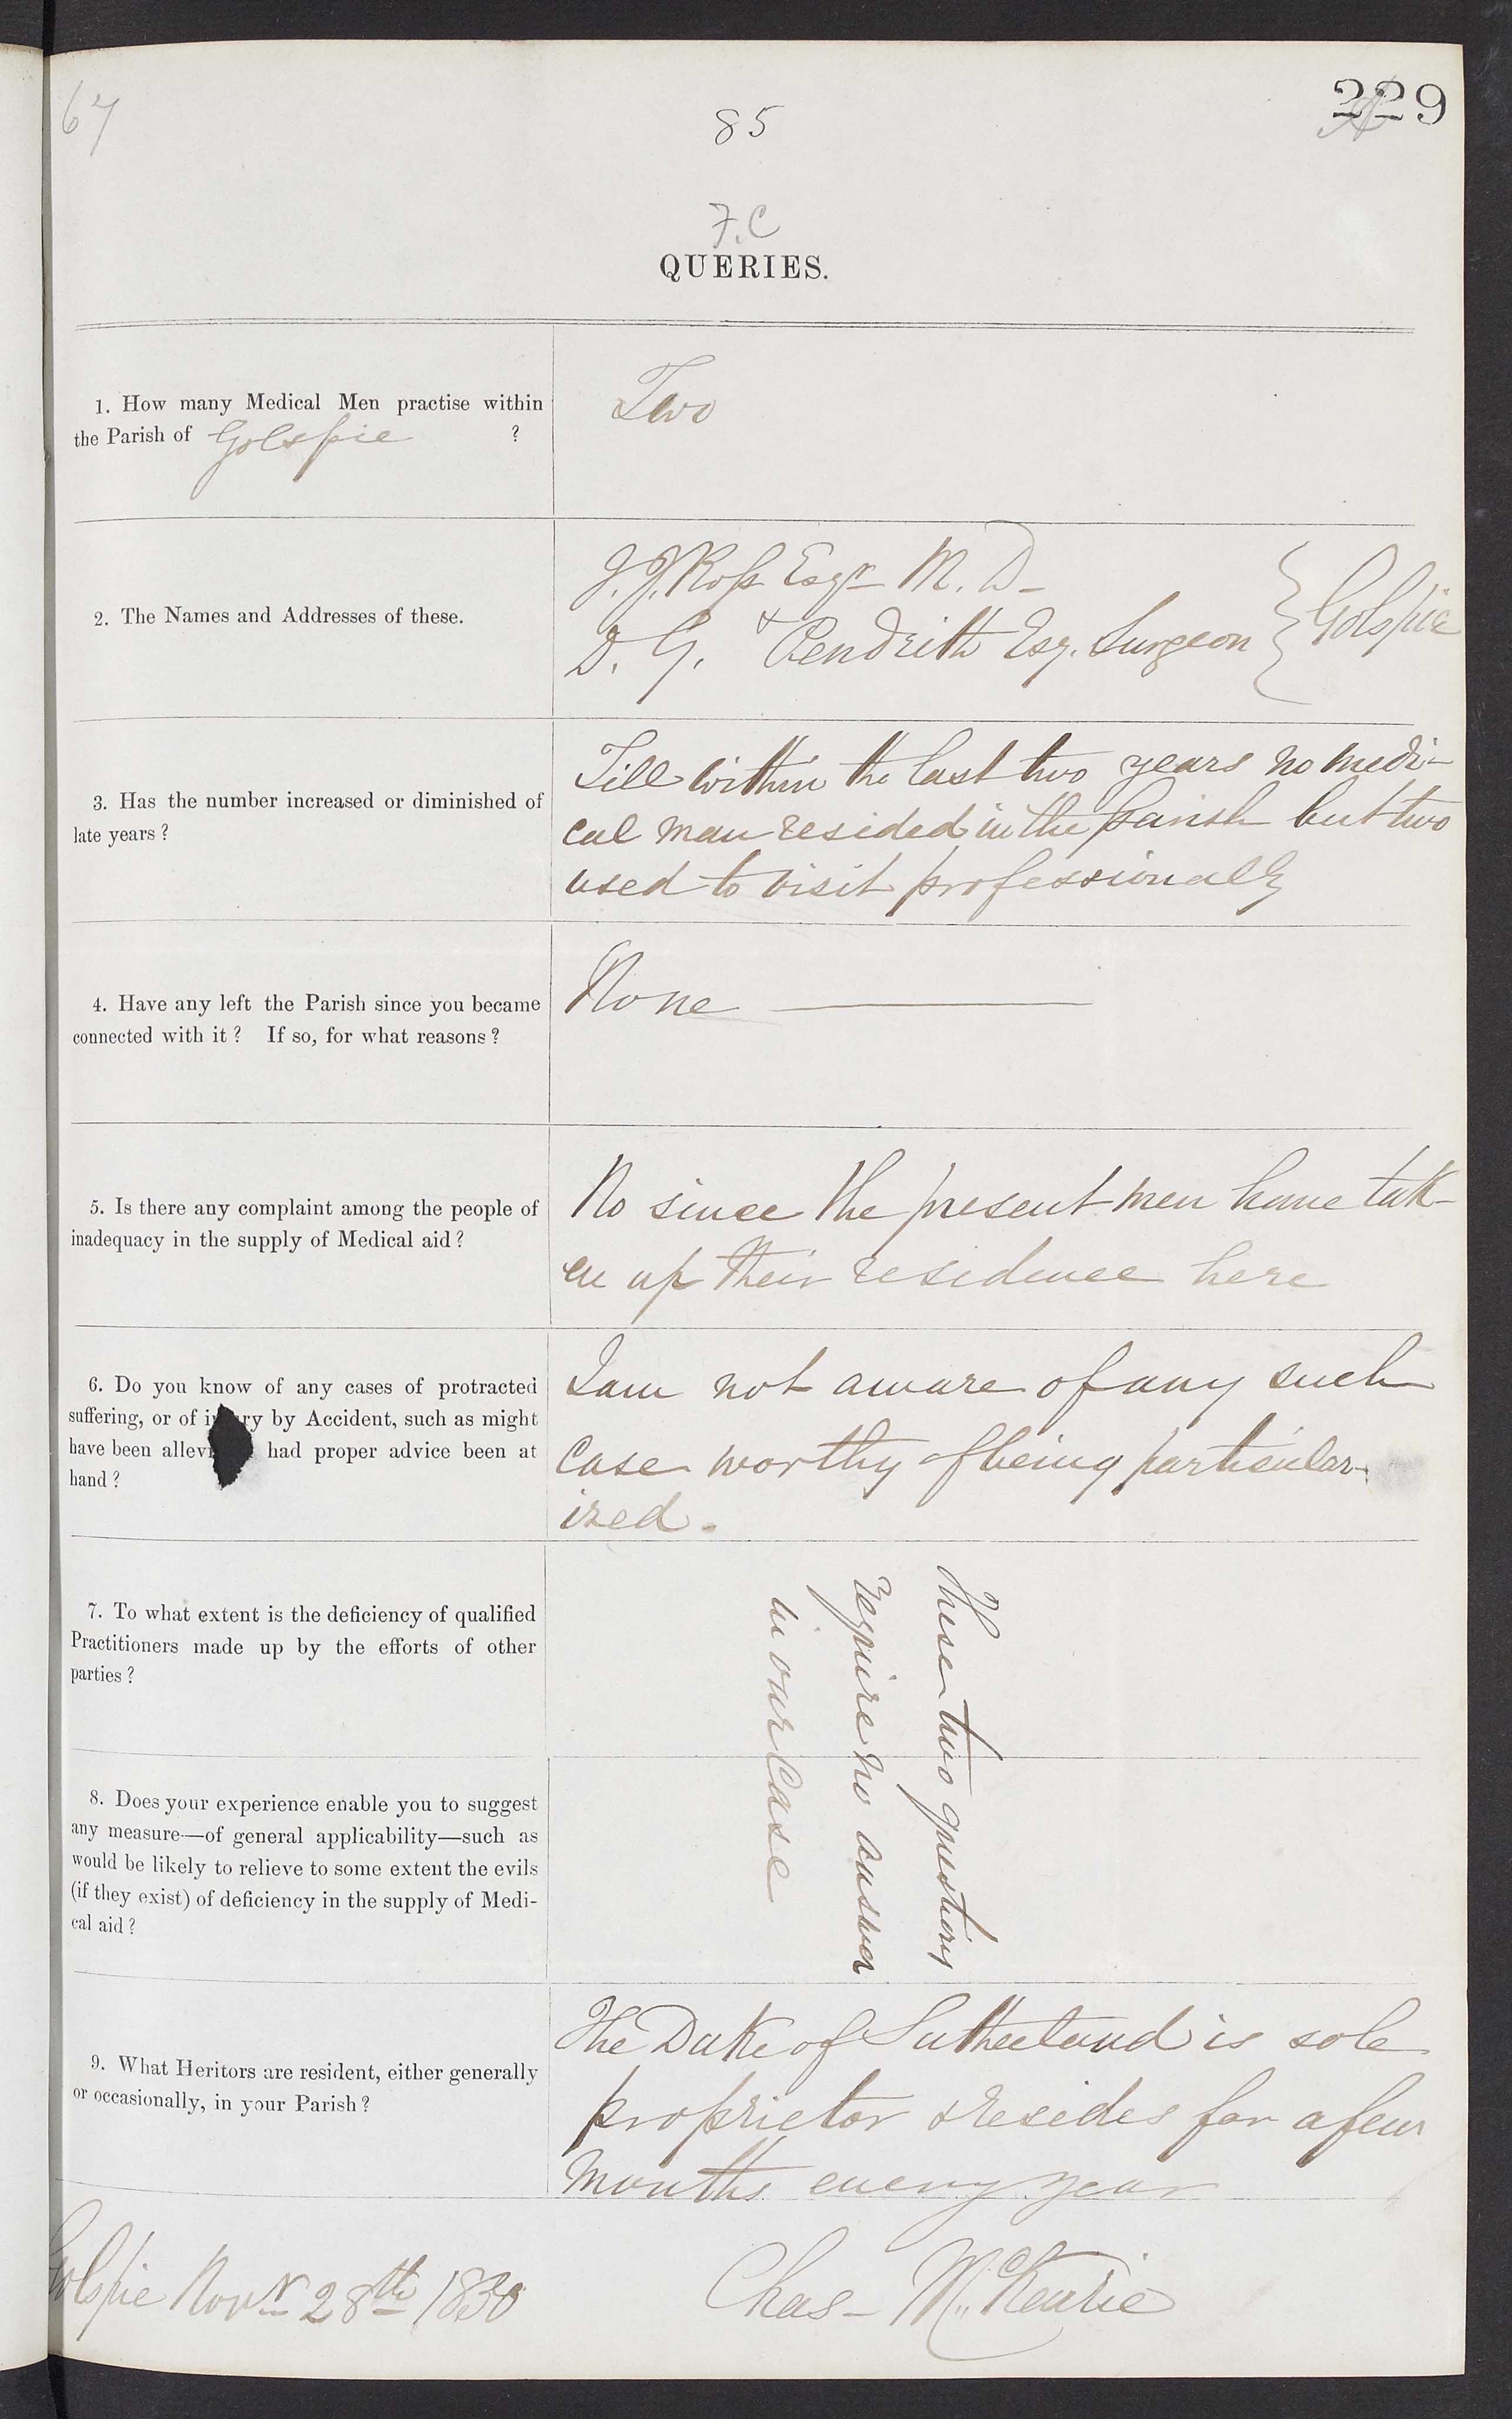 67
85
229
F.C
QUERIES.
1. How many Medical Men practise within
the Parish of Golspie ?
Two
2. The Names and Addresses of these.
J. J. Ross Esqr M. D -
&
D. G. Pendrith Esq. Surgeon } Golspie
3. Has the number increased or diminished of
late years ?
Till within the last two years no medi-
cal man resided in the parish but two
used to visit professionally
4. Have any left the Parish since you became
connected with it ? If so, for what reasons ?
None
5. Is there any complaint among the people of
inadequacy in the supply of Medical aid ?
No since the present men have tak-
en up their residence here
6. Do you know of any cases of protracted
suffering, or of in ry by Accident, such as might
have been allevi had proper advice been at
hand ?
I am not aware of any such
case worthy of being particular-
ized.
7. To what extent is the deficiency of qualified
Practitioners made up by the efforts of other
parties ?
8. Does your experience enable you to suggest
any measure—of general applicability—such as
would be likely to relieve to some extent the evils
(if they exist) of deficiency in the supply of Medi-
cal aid ?
These two questions
require no answer
in our case
9. What Heritors are resident, either generally
or occasionally, in your Parish ?
The Duke of Sutherland is sole
proprietor & resides for a few
months every year
Golspie Novr 28th 1850
Chas - Mc